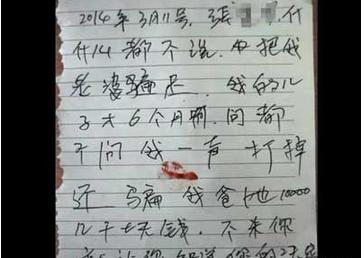 2014年3月11号,张
什么都不说.中把我
老婆骗走.我的儿
子才6个月啊.问都
不问我一声 打掉
还 骗我爸他10000
几千块钱.不来你